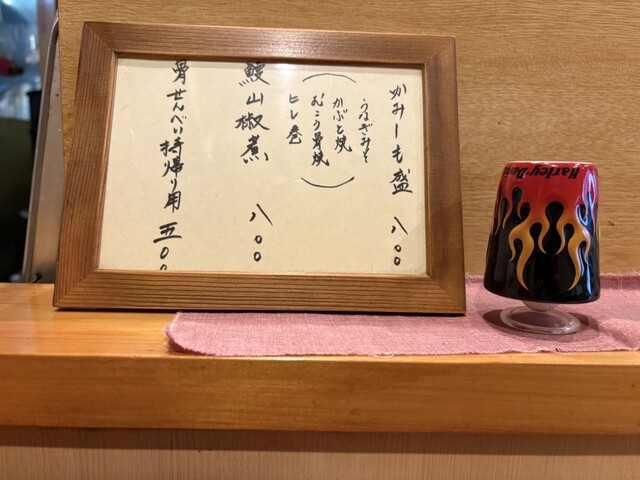 かみしも盛 八〇〇
(うなぎみそ
かぶと焼
骨焼
ヒレ巻)
鰻山椒煮 八〇〇
骨せんべい持帰り用 五〇〇
Harley-Dav